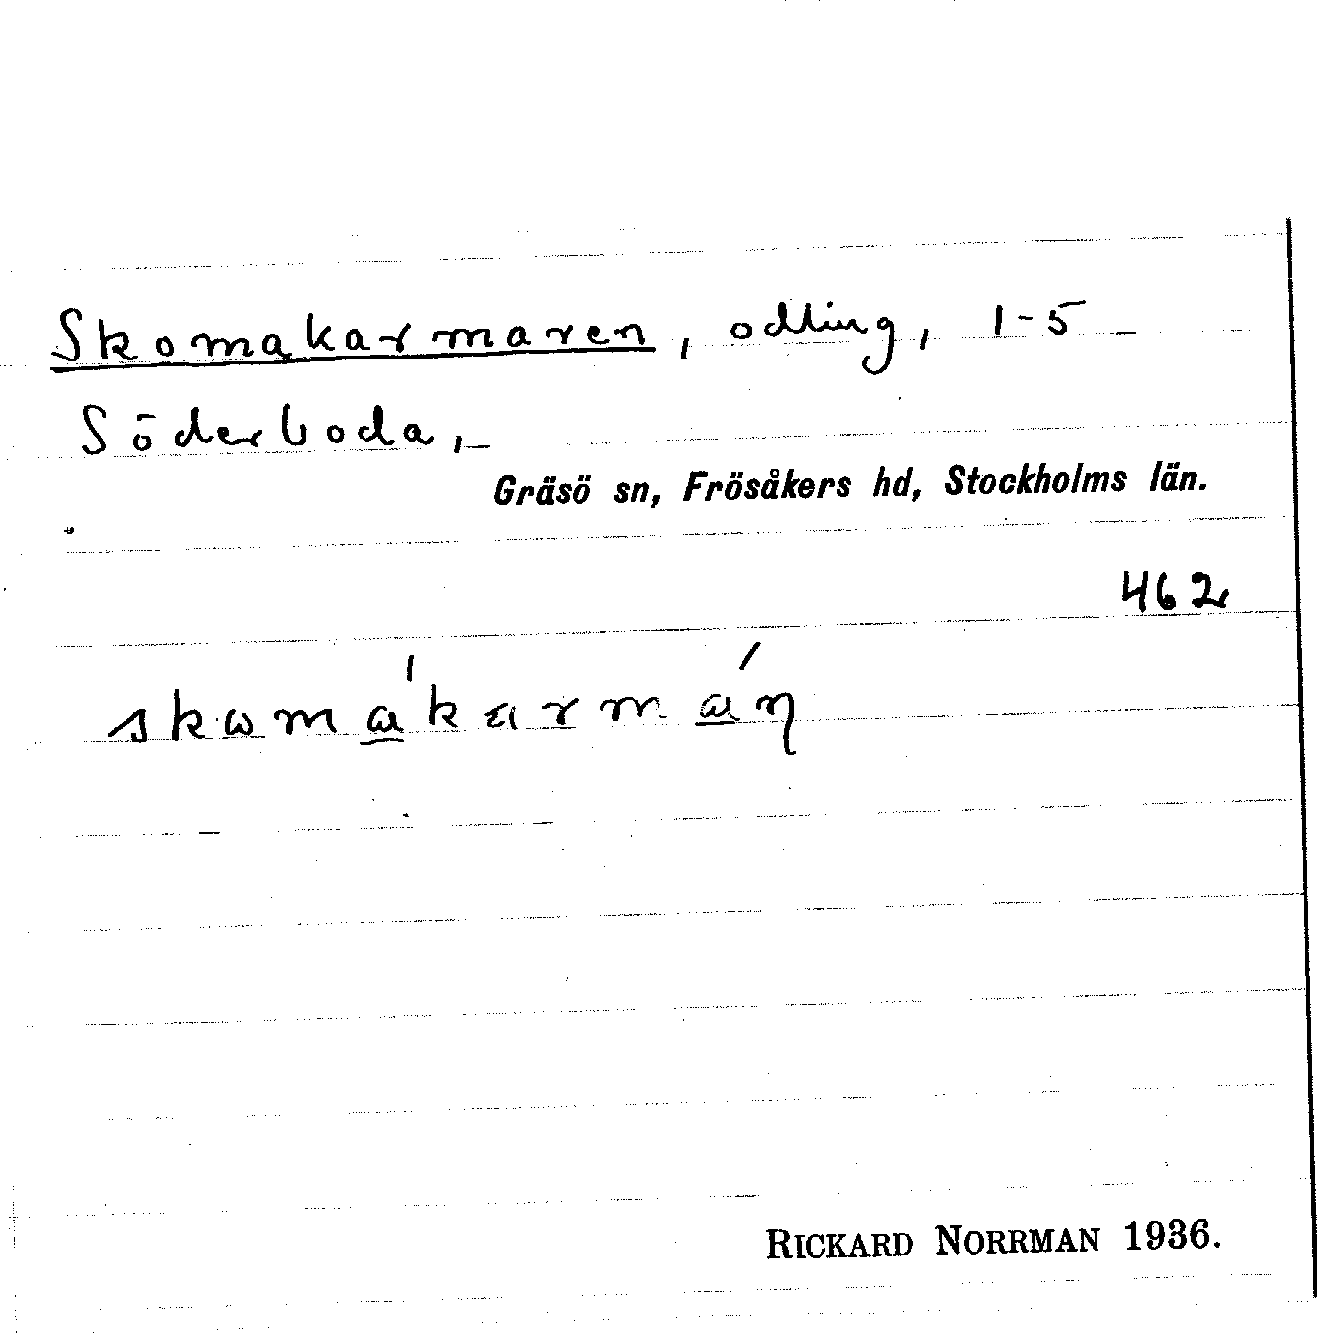 Skomakarmaren, odling, 1-5
Söderboda,
Gräsö sn, Frösåkers hd, Stockholms län.
462
skωmα̲'karmά̲ŋ
RICKARD NORRMAN 1936.